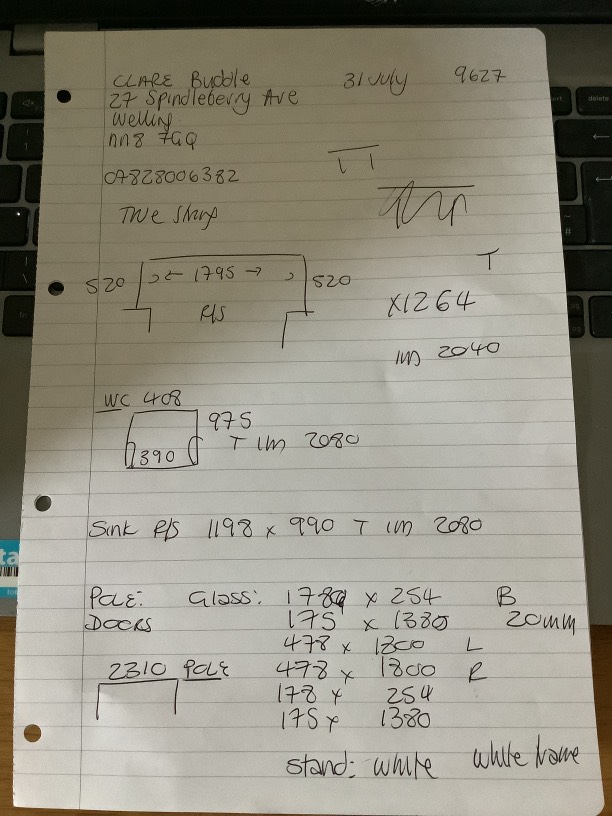 CLARE Buddle 31 July 9627
27 Spindleberry Ave
Welling
NN8 7GQ
07828006382
TWe
520 1795 520 T
R/S X1264
IM 2040
WC 408
975
390 T IM 2080
Sink R/S 1198 x 990 T IM 2080
POLE: Glass: 178 x 254 B
DOORS 175 x 1380 20mm
478 x 1800 L
2310 POLE 478 x 1800 R
178 x 254
175 x 1380
stand: white white frame
delete